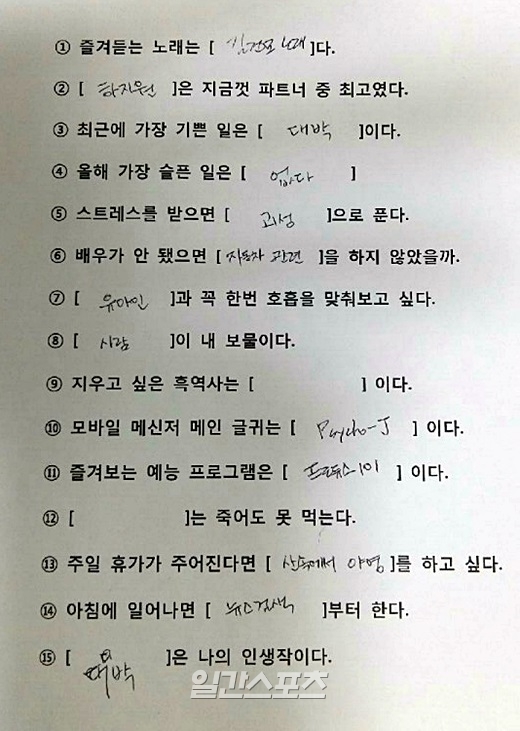 ① 즐겨듣는 노래는 [ 김건모 노래 ]다.
② [ 하지원 ]은 지금껏 파트너 중 최고였다.
③ 최근에 가장 기쁜 일은 [ 대박 ]이다.
④ 올해 가장 슬픈 일은 [ 없다 ]
⑤ 스트레스를 받으면 [ 괴성 ]으로 푼다.
⑥ 배우가 안 됐으면 [ 자동차 관련 ]을 하지 않았을까.
⑦ [ 유아인 ]과 꼭 한번 호흡을 맞춰보고 싶다.
⑧ [ 사람 ]이 내 보물이다.
⑨ 지우고 싶은 흑역사는 [ ] 이다.
⑩ 모바일 메신저 메인 글귀는 [ Psycho-J ] 이다.
⑪ 즐겨보는 예능 프로그램은 [ 프로듀스101 ] 이다.
⑫ [ ]는 죽어도 못 먹는다.
⑬ 주일 휴가가 주어진다면 [ 산속에서 야영 ]를 하고 싶다.
⑭ 아침에 일어나면 [ 뉴스검색 ]부터 한다.
⑮ [ 대박 ]은 나의 인생작이다.
일간스포츠